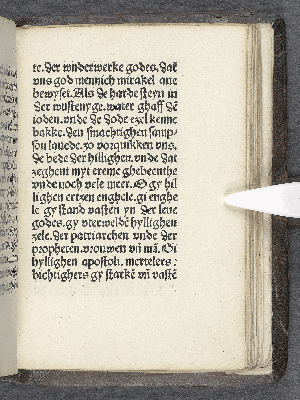 te. Der wnderwerke godes. Dat
vns god mennich mirakel ane
bewyset. Als de harde steyn in
der wustenyge. water ghaff dē
ioden. vnde de dode ezel kenne
bakke. Den smachtighen samp-
son lauede. zo vorquikken vns.
de bede der hillighen. vnde dat
zeghent myt ereme ghebeenthe
vnde noch vele meer. O gy hil
lighen ertzen enghele. gi enghe
le gy stand vasten yn der leue
godes. gy vterweldē hyllighen
zele. Der patriarchen vnde der
propheten. vrouwen vñ mā. Gi
hyllighen apostoli. mertelers:
bichtighers gy starkē vñ vastē